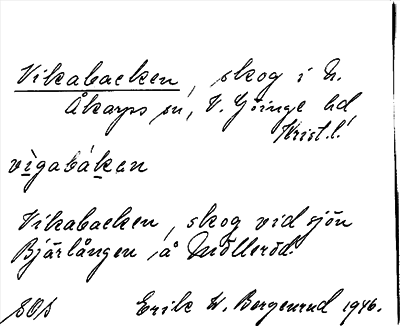 Vikabacken, skog i N.
Åkarps sn, V. Göinge hd,
Krist. l.
vìgabákan
Vikabacken, skog vid sjön
Bjärlången å Mölleröd.
SOs Erik W. Bergenrud 1946.